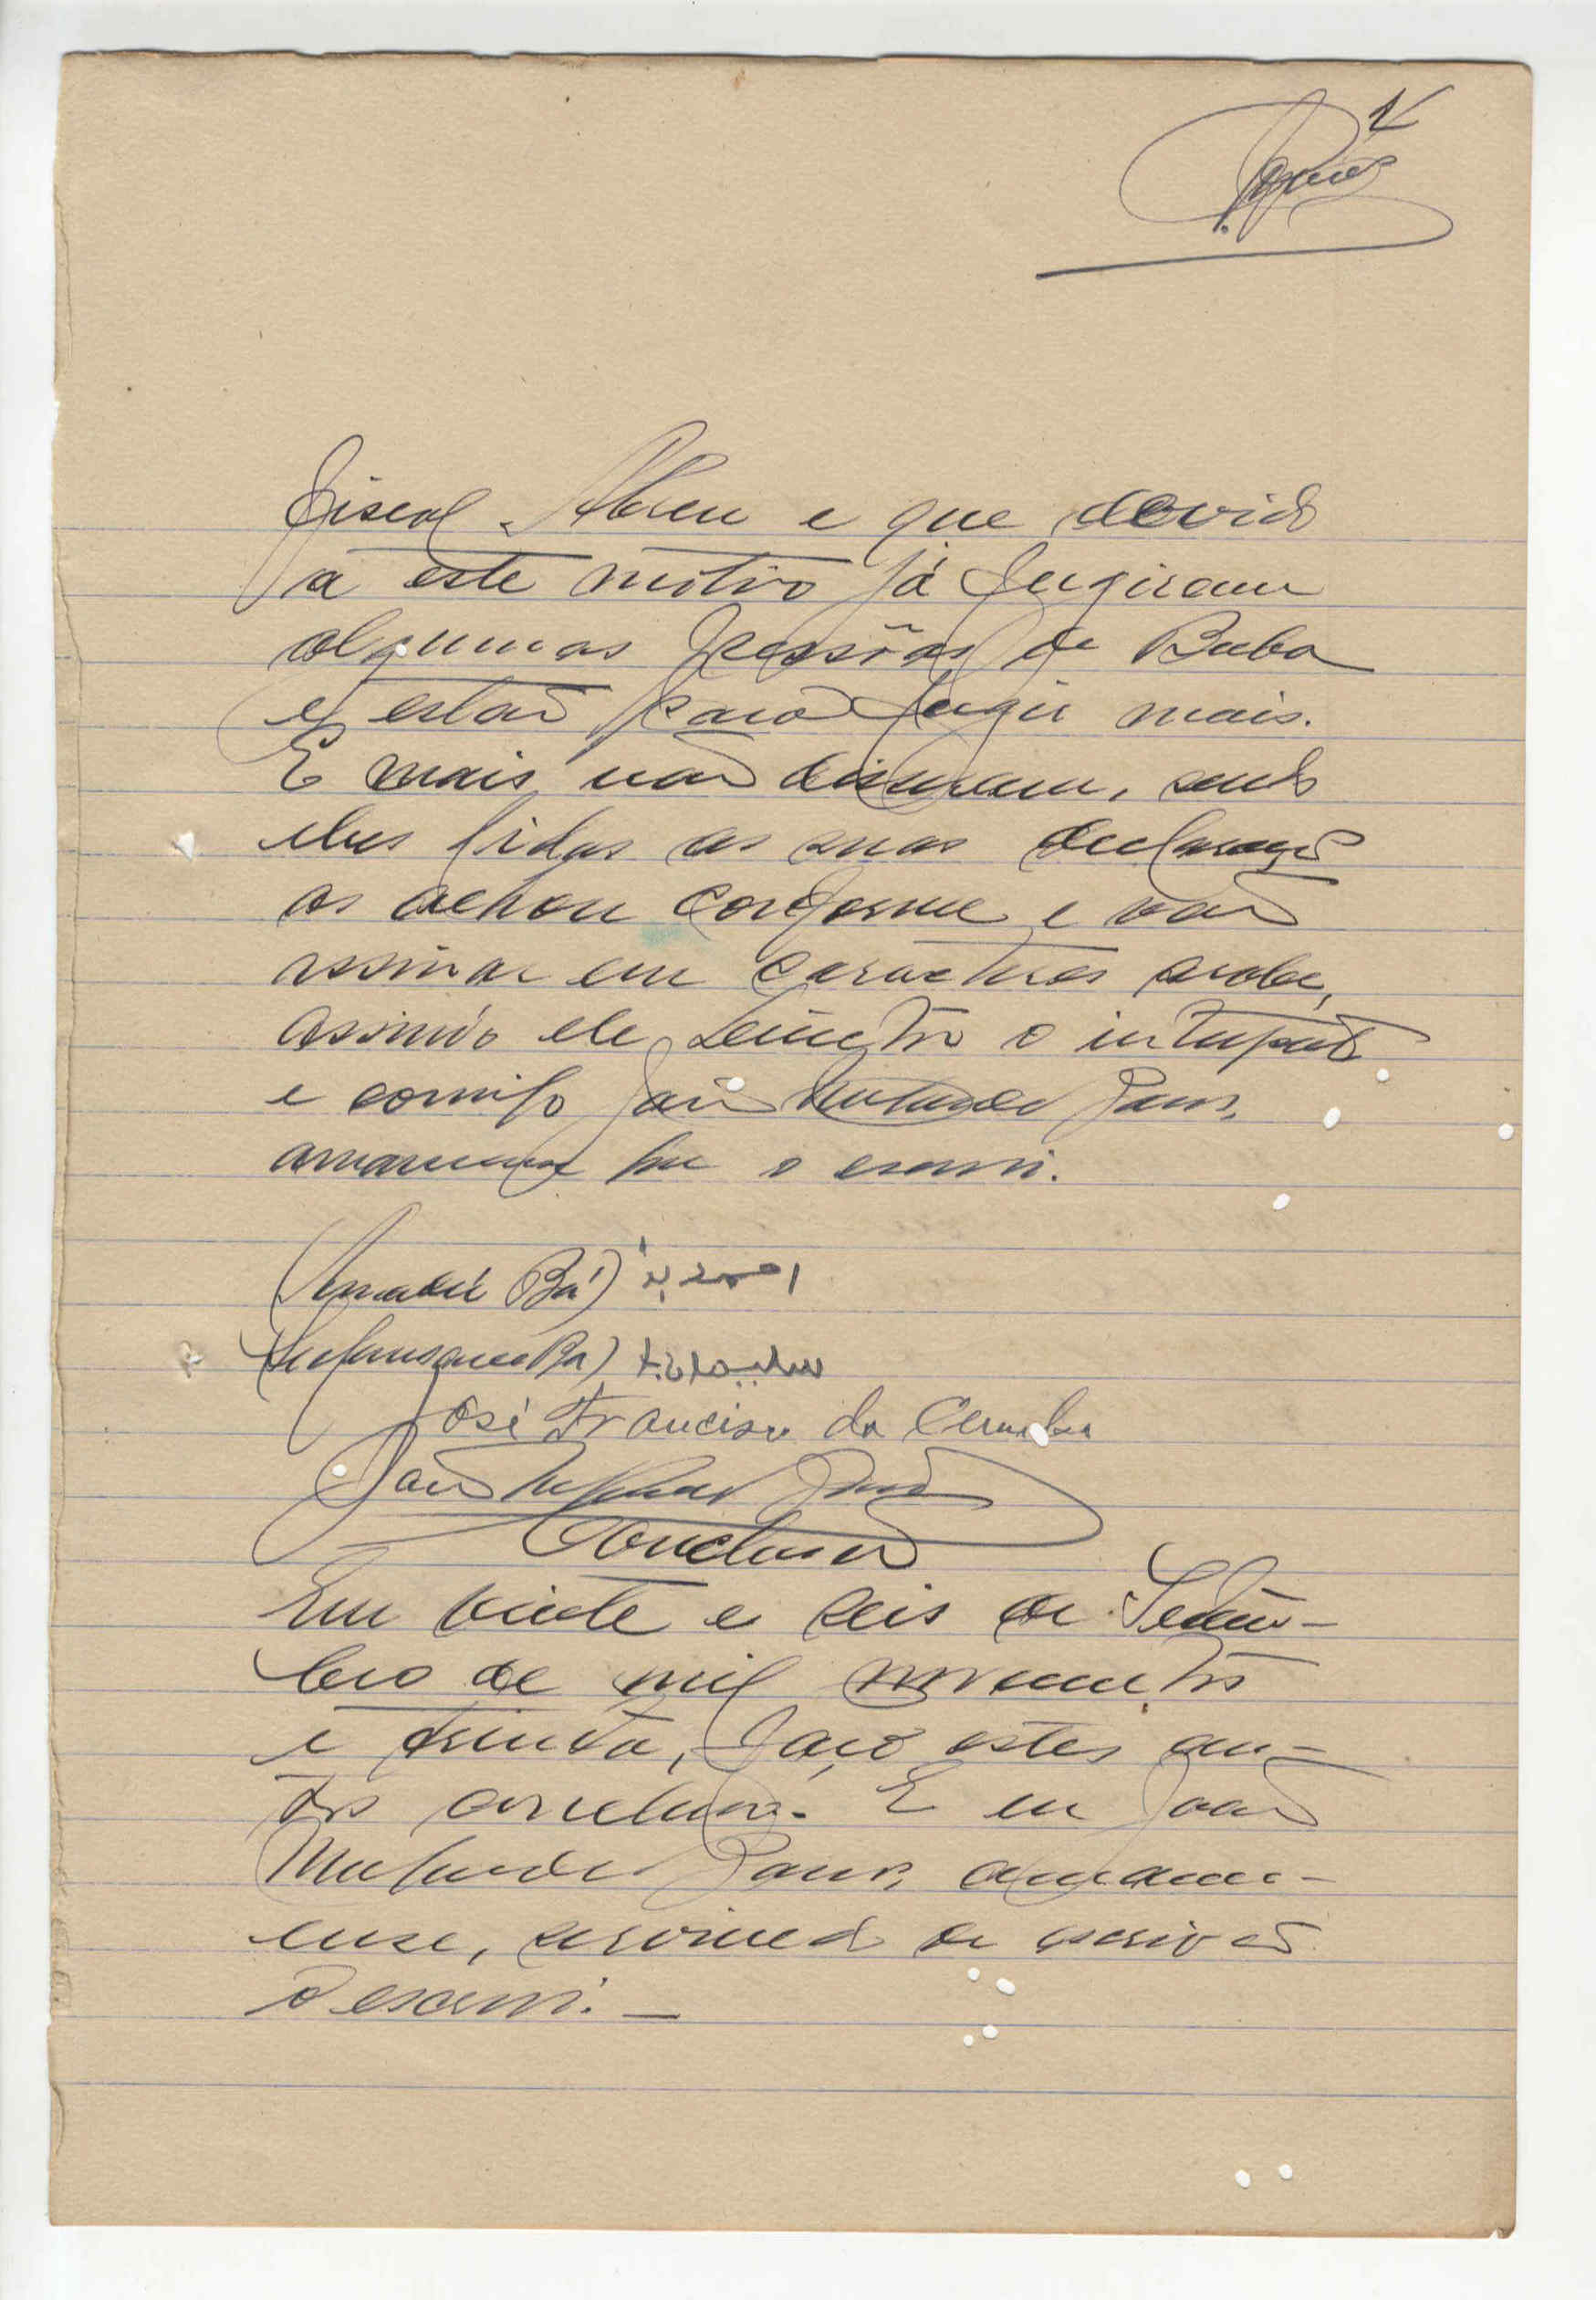 fiscal Abreu e que devido
a este motivo já fugiram
algumas pessôas de Buba
e estão para fugir mais.
E mais não disseram, sendo
lhes lidas as suas declarações
as achou conforme e vão
assinar em caracteres arabe,
assinando ele, Senhor o interprete
e comigo João Paes,
amanuense que o escrevi.
(Amadú Bá) احمد به
Bá) سليمان به
José Francisco da
João
Conclusão
Em vinte e seis de Setem-
bro de mil novecentos
e trinta, faço estes au-
tos conclusos. E eu João
Paes, amanu-
ense, servindo de escrivão
o escrevi. —